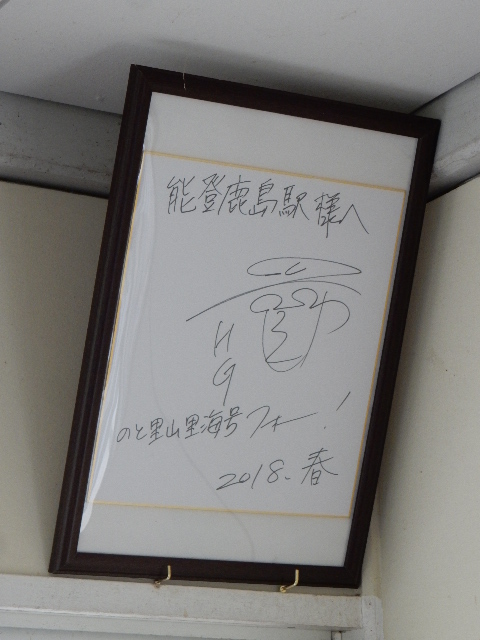 能登鹿島駅様へ
HG
のと里山里海号フォー!
2018.春